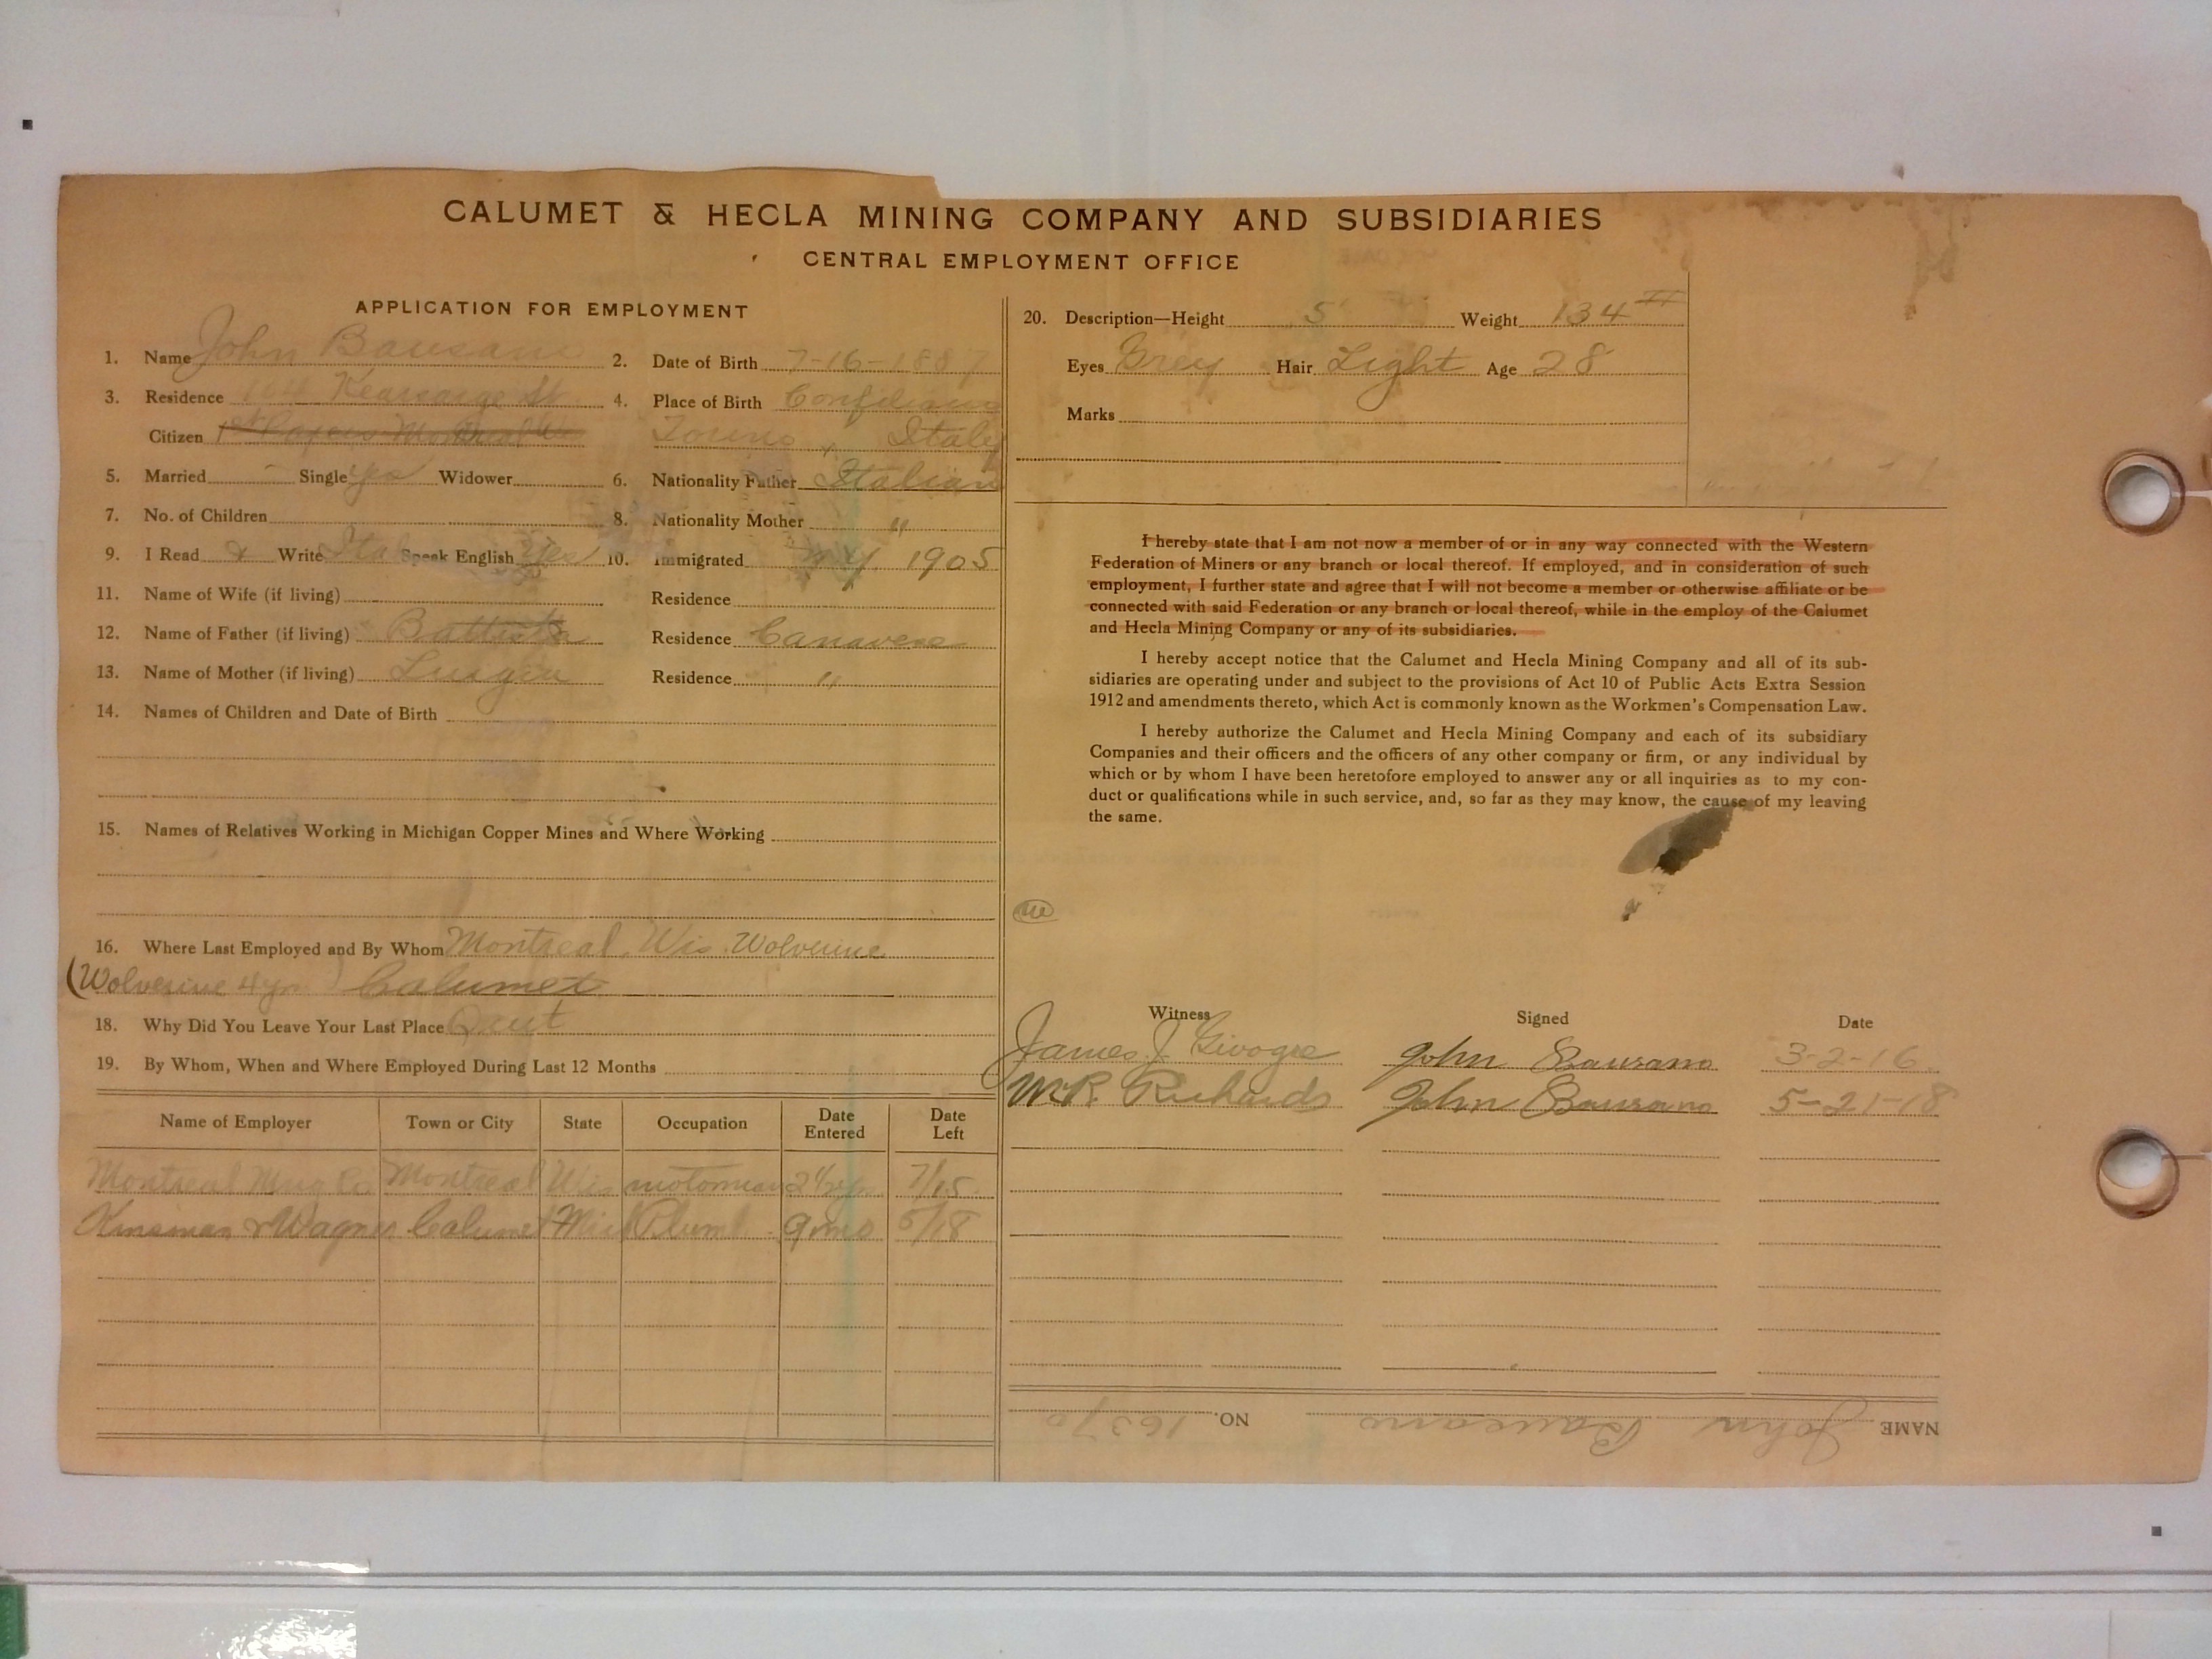 CALUMET & HECLA MINING COMPANY AND SUBSIDIARIES
CENTRAL EMPLOYMENT OFFICE
APPLICATION FOR EMPLOYMENT
1. Name John Bausano 2. Date of Birth 7-16-1887
3. Residence Kearsarge St. 4. Place of Birth
Citizen 1st Papers Torino, Italy
5. Married Single yes Widower
6. Nationality Father Italian
7. No. of Children 8. Nationality Mother "
9. I Read & Write Ital Speak English Yes 10. Immigrated N.Y. 1905
11. Name of Wife (if living) Residence
12. Name of Father (if living) Battista Residence Canavese
13. Name of Mother (if living) Residence "
14. Names of Children and Date of Birth
15. Names of Relatives Working in Michigan Copper Mines and Where Working
16. Where Last Employed and By Whom Montreal, Wis. Wolverine
(Wolverine 4 yrs) Calumet
18. Why Did You Leave Your Last Place Quit
19. By Whom, When and Where Employed During Last 12 Months
Name of Employer Town or City State Occupation Date Entered Date Left
Montreal Mng Co. Montreal Wis motorman 2 1/2 yrs 7/15
Kinsman & Wagner Calumet Mich Plumb 9 mos 5/18
20. Description—Height 5' Weight 134 #
Eyes Grey Hair Light Age 28
Marks
I hereby state that I am not now a member of or in any way connected with the Western
Federation of Miners or any branch or local thereof. If employed, and in consideration of such
employment, I further state and agree that I will not become a member or otherwise affiliate or be
connected with said Federation or any branch or local thereof, while in the employ of the Calumet
and Hecla Mining Company or any of its subsidiaries.
I hereby accept notice that the Calumet and Hecla Mining Company and all of its sub-
sidiaries are operating under and subject to the provisions of Act 10 of Public Acts Extra Session
1912 and amendments thereto, which Act is commonly known as the Workmen's Compensation Law.
I hereby authorize the Calumet and Hecla Mining Company and each of its subsidiary
Companies and their officers and the officers of any other company or firm, or any individual by
which or by whom I have been heretofore employed to answer any or all inquiries as to my con-
duct or qualifications while in such service, and, so far as they may know, the cause of my leaving
the same.
Witness Signed Date
James J. John Bausano 3-2-16
W.R. Richards John Bausano 5-21-18
NAME John Bausano NO. 16370